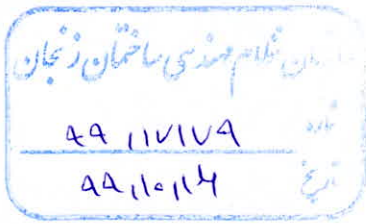 سازمان نظام مهندسی ساختمان زنجان
شماره ۹۹/۱۷۱۷۹
تاریخ ۹۹/۱۰/۱۴